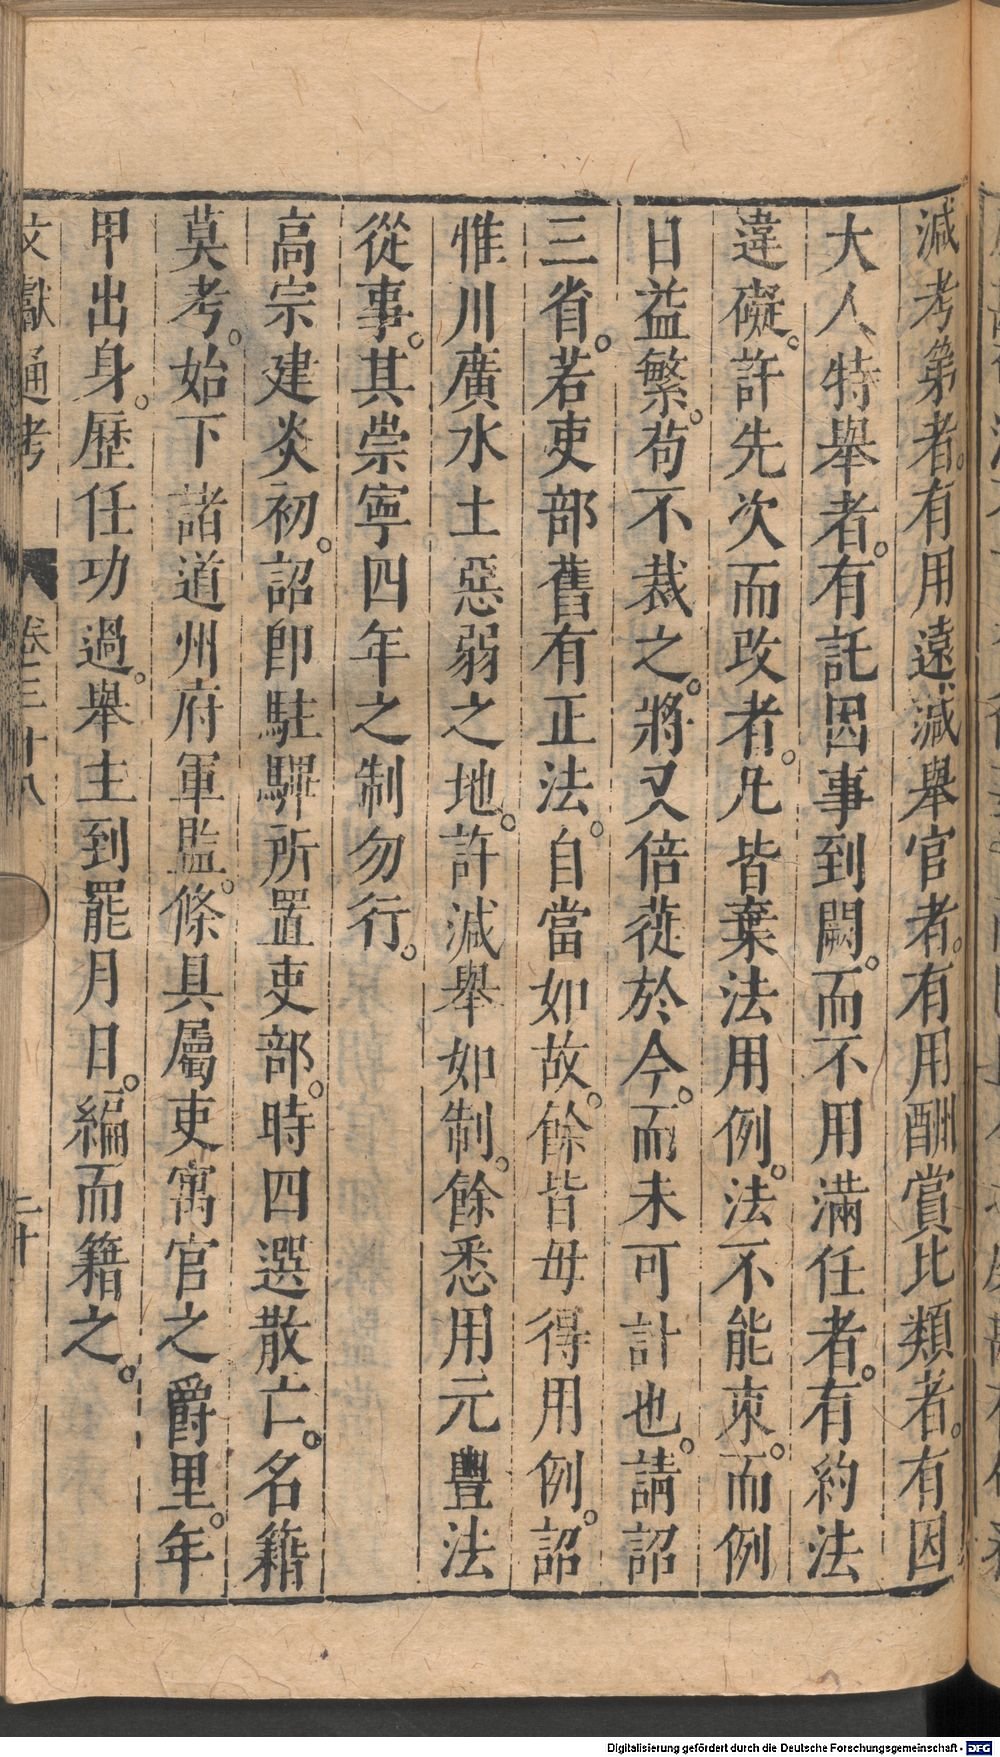 減考第者。有用遠減舉官者。有用酬賞比類者。有因
大人特舉者。有託因事到闕。而不用滿任者。有約法
違礙。許先次而改者。凡皆棄法用例。法不能束。而例
日益繁。茍不裁之。將又倍蓰於今。而未可計也。請詔
三省。若吏部舊有正法。自當如故。餘皆毋得用例。詔
惟川廣水土惡弱之地。許減舉如制。餘悉用元豐法
從事。其崇寧四年之制勿行。
高宗建炎初。詔即駐驆所置吏部。時四選散亡。名籍
莫考。始下諸道州府軍監。條具屬吏寓官之爵里。年
甲出身。歷任功過。舉主到罷月日。編而籍之。
文獻通考 卷三十八 二十
Digitalisierung gefördert durch die Deutsche Forschungsgemeinschaft - DFG